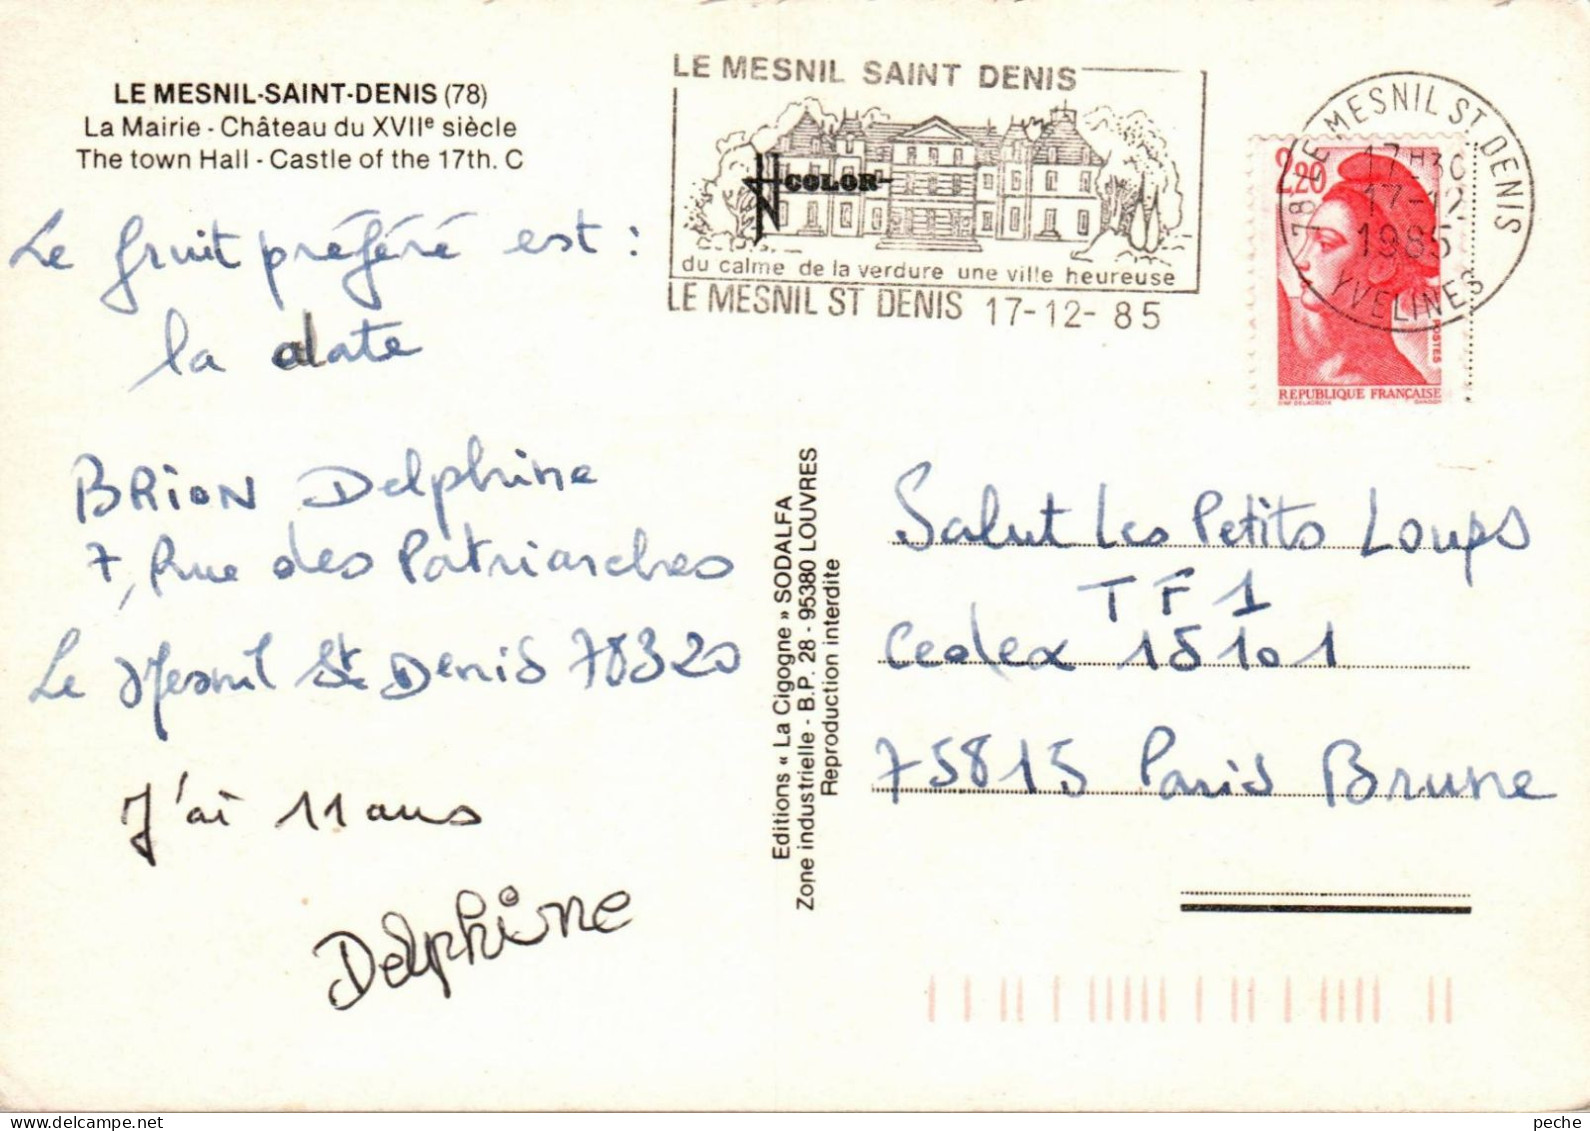 LE MESNIL-SAINT-DENIS (78)
La Mairie - Château du XVIIe siècle
The town Hall - Castle of the 17th. C
Le fruit préféré est :
la date
BRION Delphine
7, Rue des Patriarches
Le Mesnil St Denis 78320
J'ai 11 ans
Delphine
LE MESNIL SAINT DENIS
COLOR
du calme de la verdure une ville heureuse
LE MESNIL ST DENIS 17-12-85
78 LE MESNIL ST DENIS
17H30
17-12
1985
YVELINES
2,20
POSTES
REPUBLIQUE FRANÇAISE
Editions « La Cigogne » SODALFA
Zone industrielle - B.P. 28 - 95380 LOUVRES
Reproduction interdite
Salut Les Petits Loups
TF1
Cedex 15101
75815 Paris Brune
peche